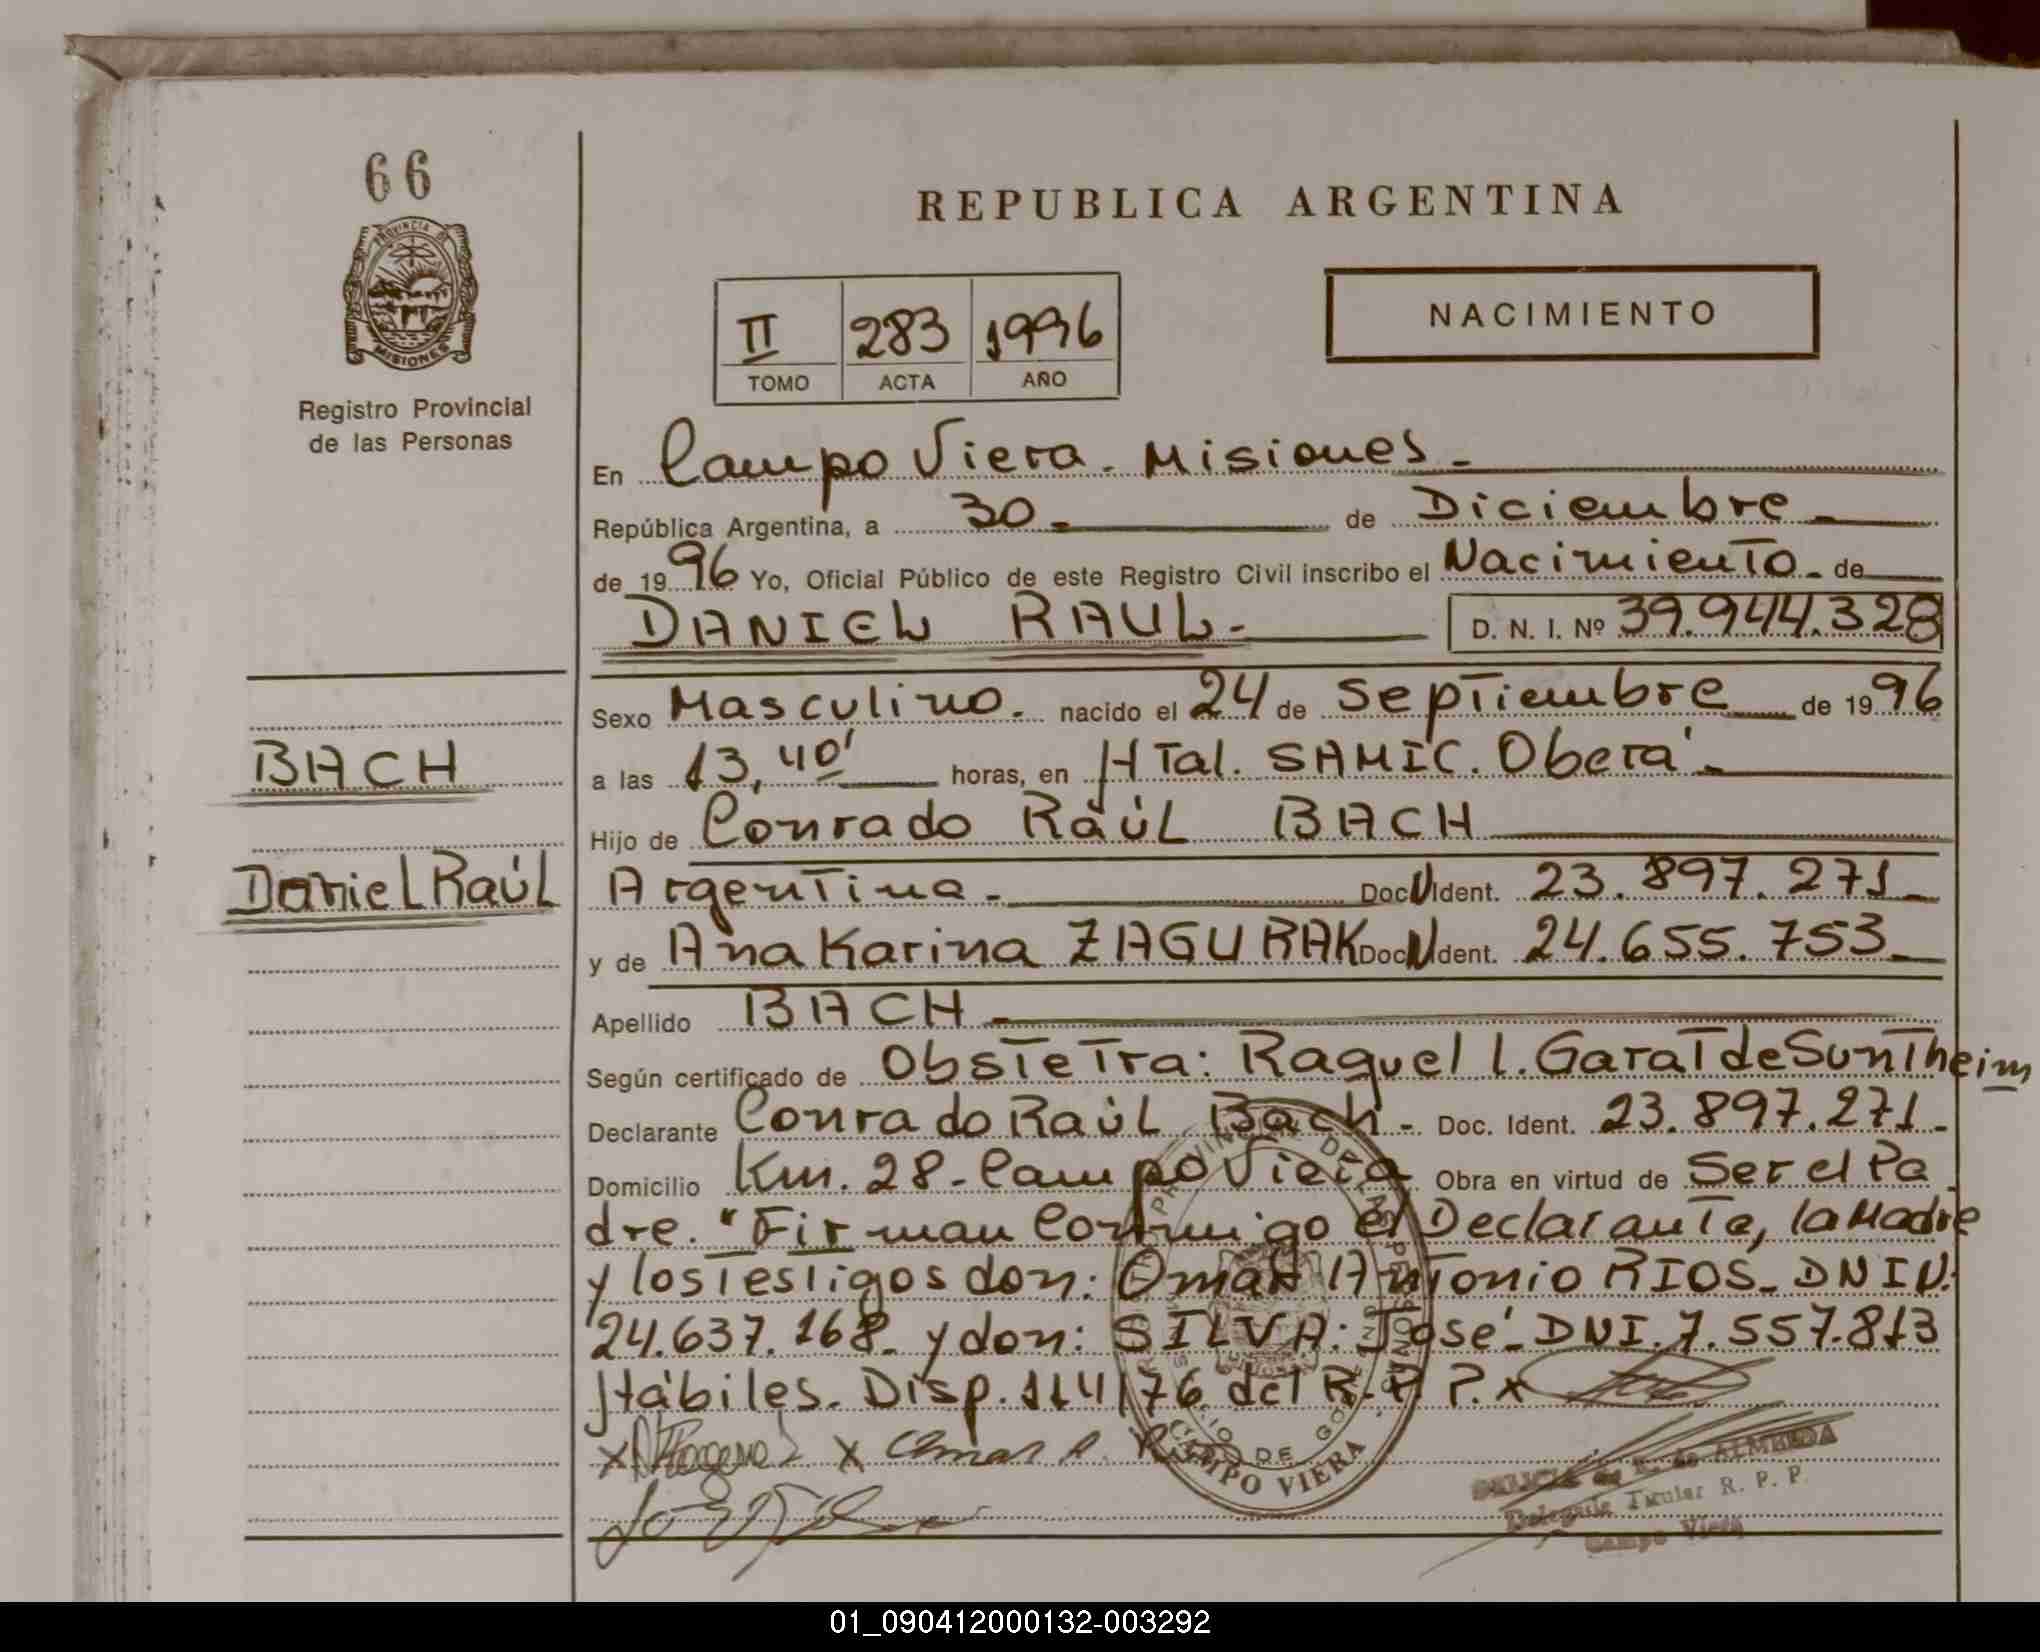 66
PROVINCIA DE
MISIONES
Registro Provincial
de las Personas
REPUBLICA ARGENTINA
II 283 1996
TOMO ACTA AÑO
NACIMIENTO
En Campo Viera. Misiones.
República Argentina, a 30. de Diciembre
de 1996 Yo, Oficial Público de este Registro Civil inscribo el Nacimiento. de
DANIEL RAUL. D. N. I. Nº 39.944.328
Sexo Masculino. nacido el 24 de Septiembre de 1996
a las 13,40' horas, en HTal. SAMIC. Oberá.
BACH
Hijo de Conrado Raúl BACH
Daniel Raúl
Argentina. Doc N Ident. 23.897.271
y de Ana Karina ZAGURAK Doc N Ident. 24.655.753
Apellido BACH
Según certificado de Obstetra: Raquel l. Garat de Suntheim
Declarante Conrado Raúl Bach. Doc. Ident. 23.897.271.
Domicilio Km. 28. Campo Viera Obra en virtud de Ser el Pa
dre. "Firman Conmigo el Declarante, la Madre
y los Testigos don: Omar Antonio RIOS. DNI N:
24.637.168. y don: SILVA: José. DNI. 7.557.813
Hábiles. Disp. 114/76 del R. P. P. x
x x Omar A.
CAMPO VIERA
de ALMEIDA
Delegada Titular R. P. P.
Campo Viera
01_090412000132-003292